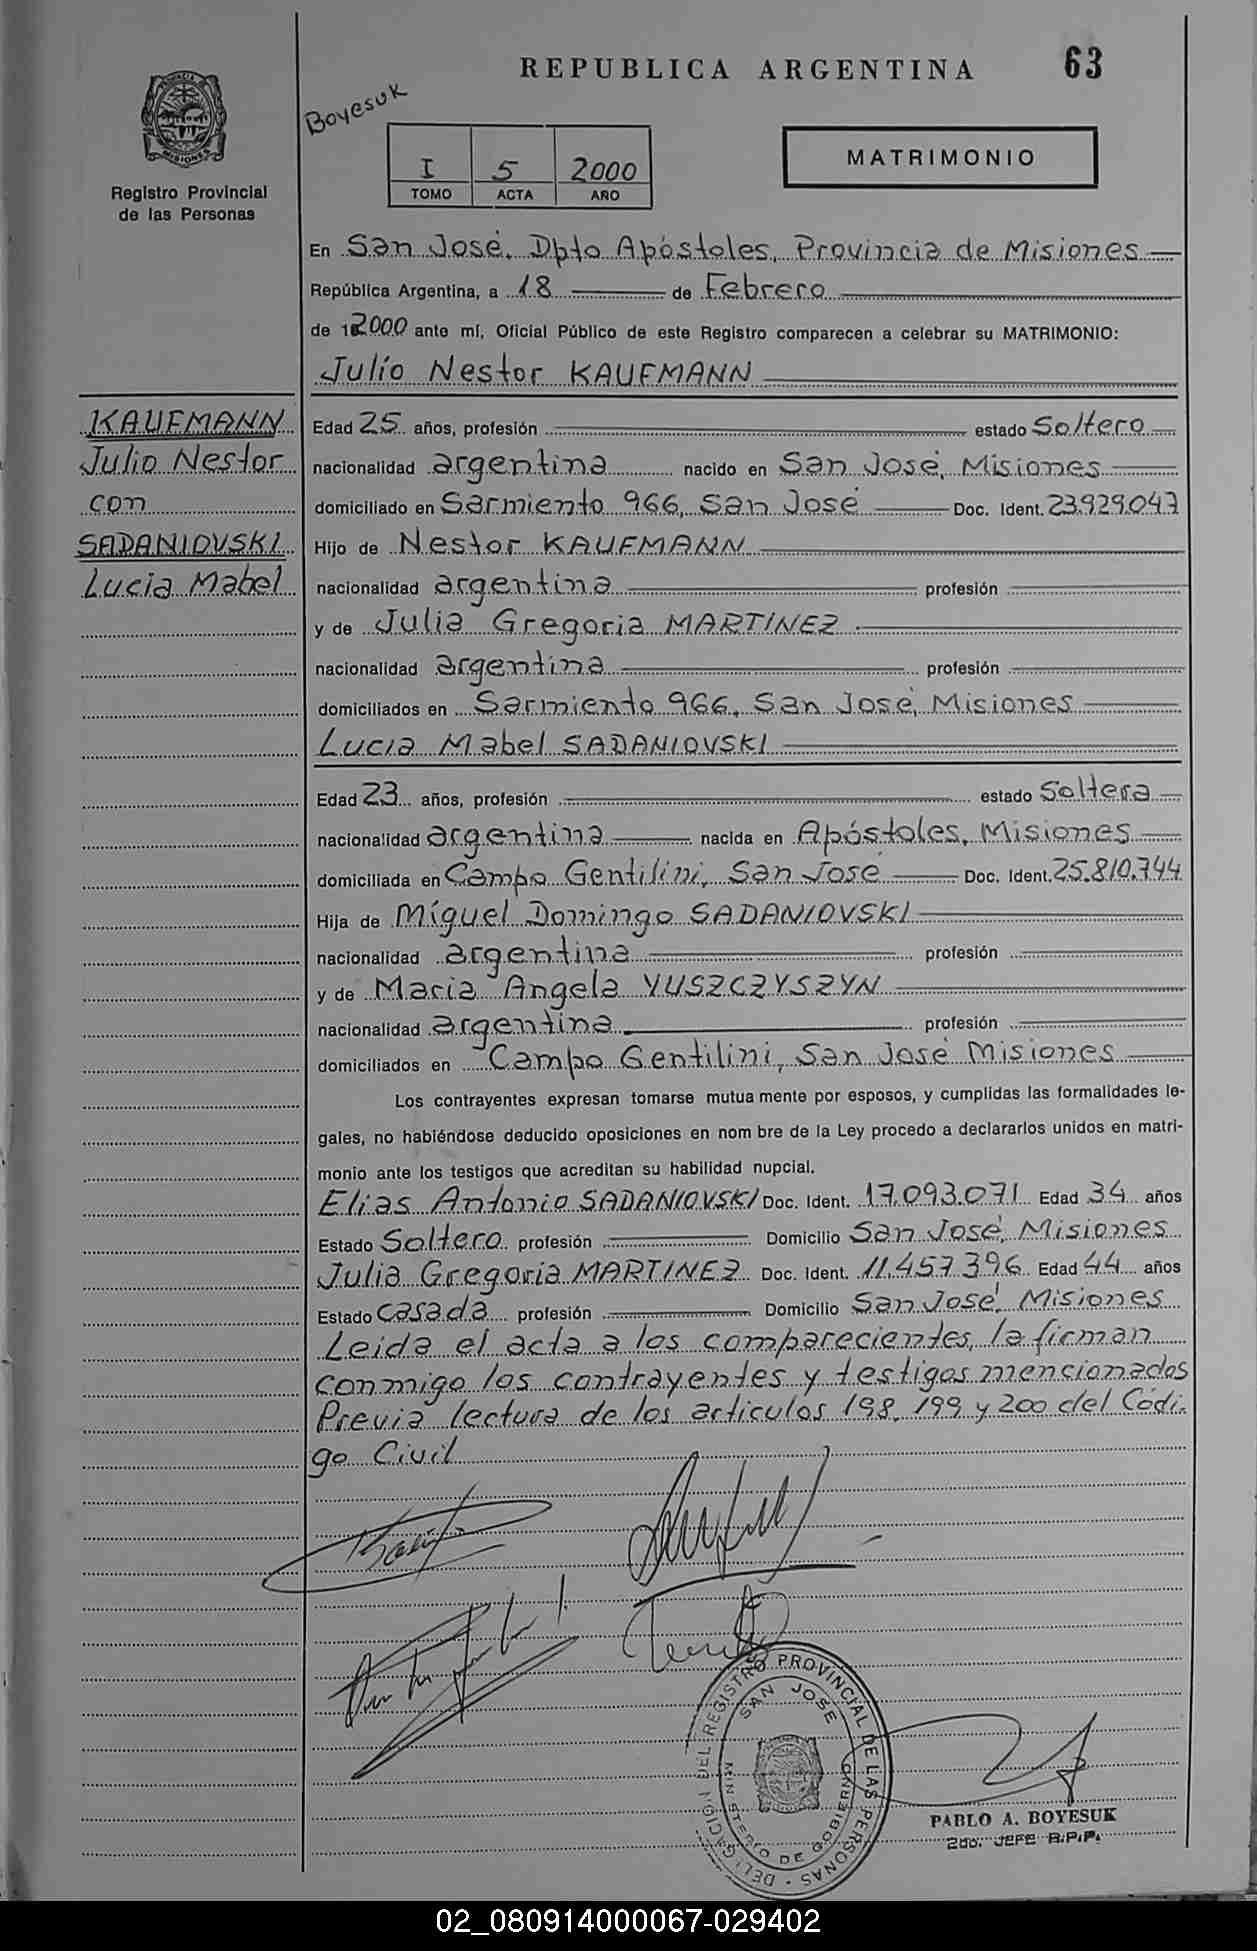 REPUBLICA ARGENTINA
63
Boyesuk
PROVINCIA
MISIONES
Registro Provincial
de las Personas
I 5 2000
TOMO ACTA AÑO
MATRIMONIO
En San José, Dpto Apóstoles, Provincia de Misiones
República Argentina, a 18 de Febrero
de 2000 ante mí, Oficial Público de este Registro comparecen a celebrar su MATRIMONIO:
Julio Nestor KAUFMANN
KAUFMANN
Julio Nestor
con
SADANIOVSKI
Lucia Mabel
Edad 25 años, profesión estado Soltero
nacionalidad argentina nacido en San José, Misiones
domiciliado en Sarmiento 966, San José Doc. Ident. 23.929.047
Hijo de Nestor KAUFMANN
nacionalidad argentina profesión
y de Julia Gregoria MARTINEZ
nacionalidad argentina profesión
domiciliados en Sarmiento 966, San José, Misiones
Lucia Mabel SADANIOVSKI
Edad 23 años, profesión estado Soltera
nacionalidad argentina nacida en Apóstoles, Misiones
domiciliada en Campo Gentilini, San José Doc. Ident. 25.810.744
Hija de Miguel Domingo SADANIOVSKI
nacionalidad argentina profesión
y de Maria Angela YUSZCZYSZYN
nacionalidad argentina profesión
domiciliados en Campo Gentilini, San José Misiones
Los contrayentes expresan tomarse mutua mente por esposos, y cumplidas las formalidades le-
gales, no habiéndose deducido oposiciones en nom bre de la Ley procedo a declararlos unidos en matri-
monio ante los testigos que acreditan su habilidad nupcial.
Elias Antonio SADANIOVSKI Doc. Ident. 17.093.071 Edad 34 años
Estado Soltero profesión Domicilio San José, Misiones
Julia Gregoria MARTINEZ Doc. Ident. 11.457.396 Edad 44 años
Estado casada profesión Domicilio San José, Misiones
Leida el acta a los comparecientes, la firman
conmigo los contrayentes y testigos mencionados
Previa lectura de los articulos 198, 199 y 200 del Códi-
go Civil
DELEGACION DEL REGISTRO PROVINCIAL DE LAS PERSONAS
SAN JOSE
MINISTERIO DE GOBIERNO
PABLO A. BOYESUK
2do. JEFE R.P.P.
02_080914000067-029402